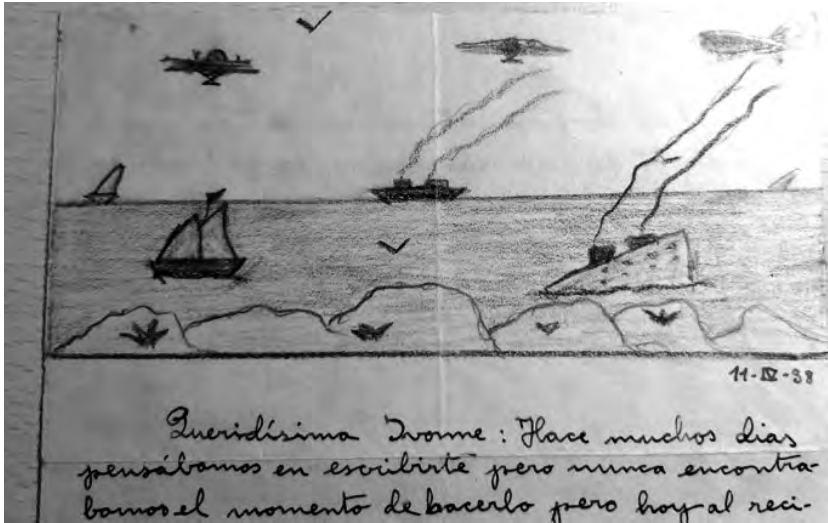 11-IV-38
Queridísima Ivonne: Hace muchos dias
pensábamos en escribirte pero nunca encontra-
bamos el momento de hacerlo pero hoy al reci-